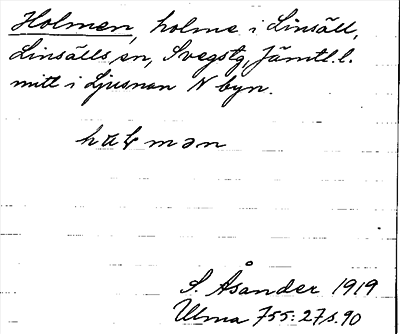 Holmen, holme i Linsäll,
Linsälls sn, Svegs tg, Jämtl. l.
mitt i Ljusnan N byn.
S. Åsander 1919
Ulma 755:27 s. 90